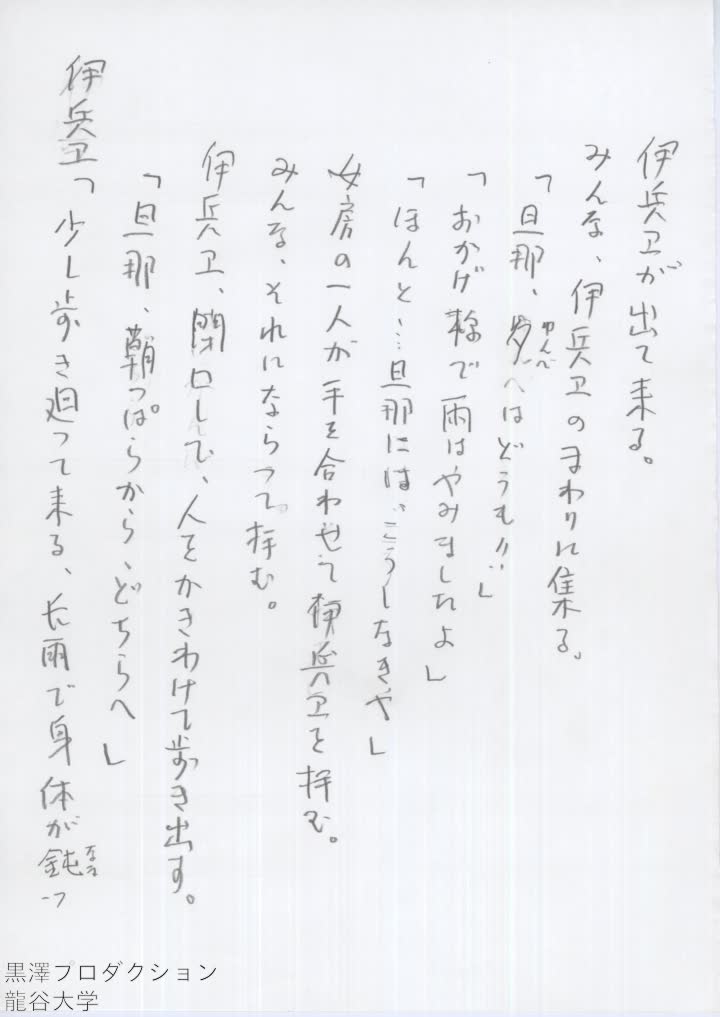 伊兵卫が出て来る。
みんな、伊兵卫のまわりに集る。
「旦那、夕べはどうも……」
ゆんべ
「おかげ様で雨はやみましたよ」
「ほんと……旦那には、こうしなきや」
女房の一人が手を合わせて伊兵卫を拝む。
みんな、それにならって拝む。
伊兵卫、閉口して、人をかきわけて歩き出す。
「旦那、朝っぱらからどちらへ」
伊兵卫「少し歩き廻って来る、長雨で身体が鈍っ
なま
黒澤プロダクション
龍谷大学